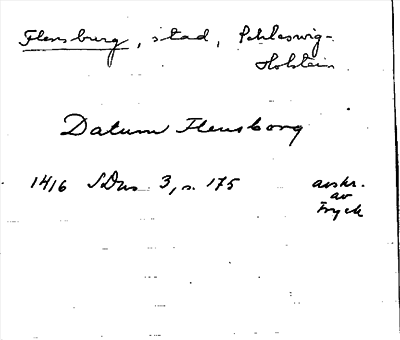 Flensburg, stad, Schleswig-
Holstein
Datum Flensborg
1416 SDns 3, s. 175 avskr.
av
tryck